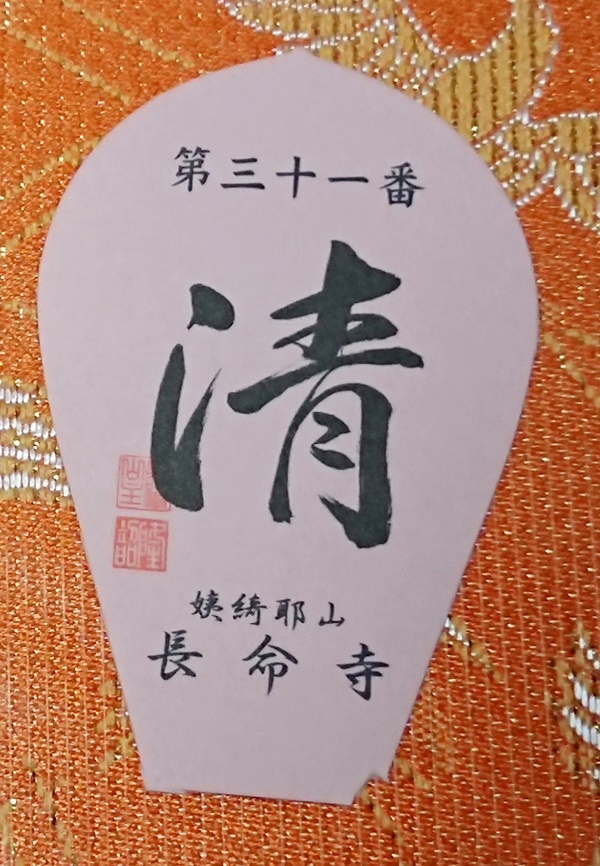 第三十一番
清
姨綺耶山
長命寺